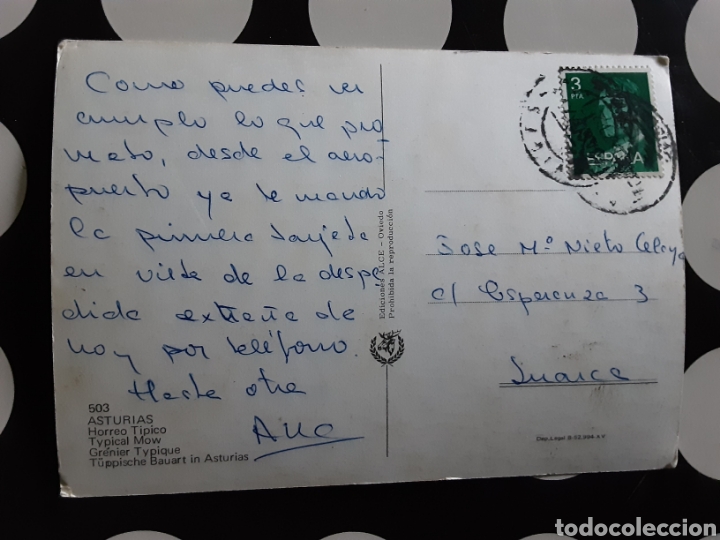 Como puedes ver
cumplo lo que pro
meto, desde el aero-
puerto ya te mando
la primera tarjeta
en vista de la despe
dida extraña de
hoy por teléfono.
Hasta otra
Ana
503
ASTURIAS
Horreo Tipico
Typical Mow
Grénier Typique
Tüppische Bauart in Asturias
Ediciones ALCE - Oviedo
Prohibida la reproducción
3
PTA
ESPAÑA
Jose Mº Nieto Celaya
c/ Esperanza 3
Luarca
todocoleccion